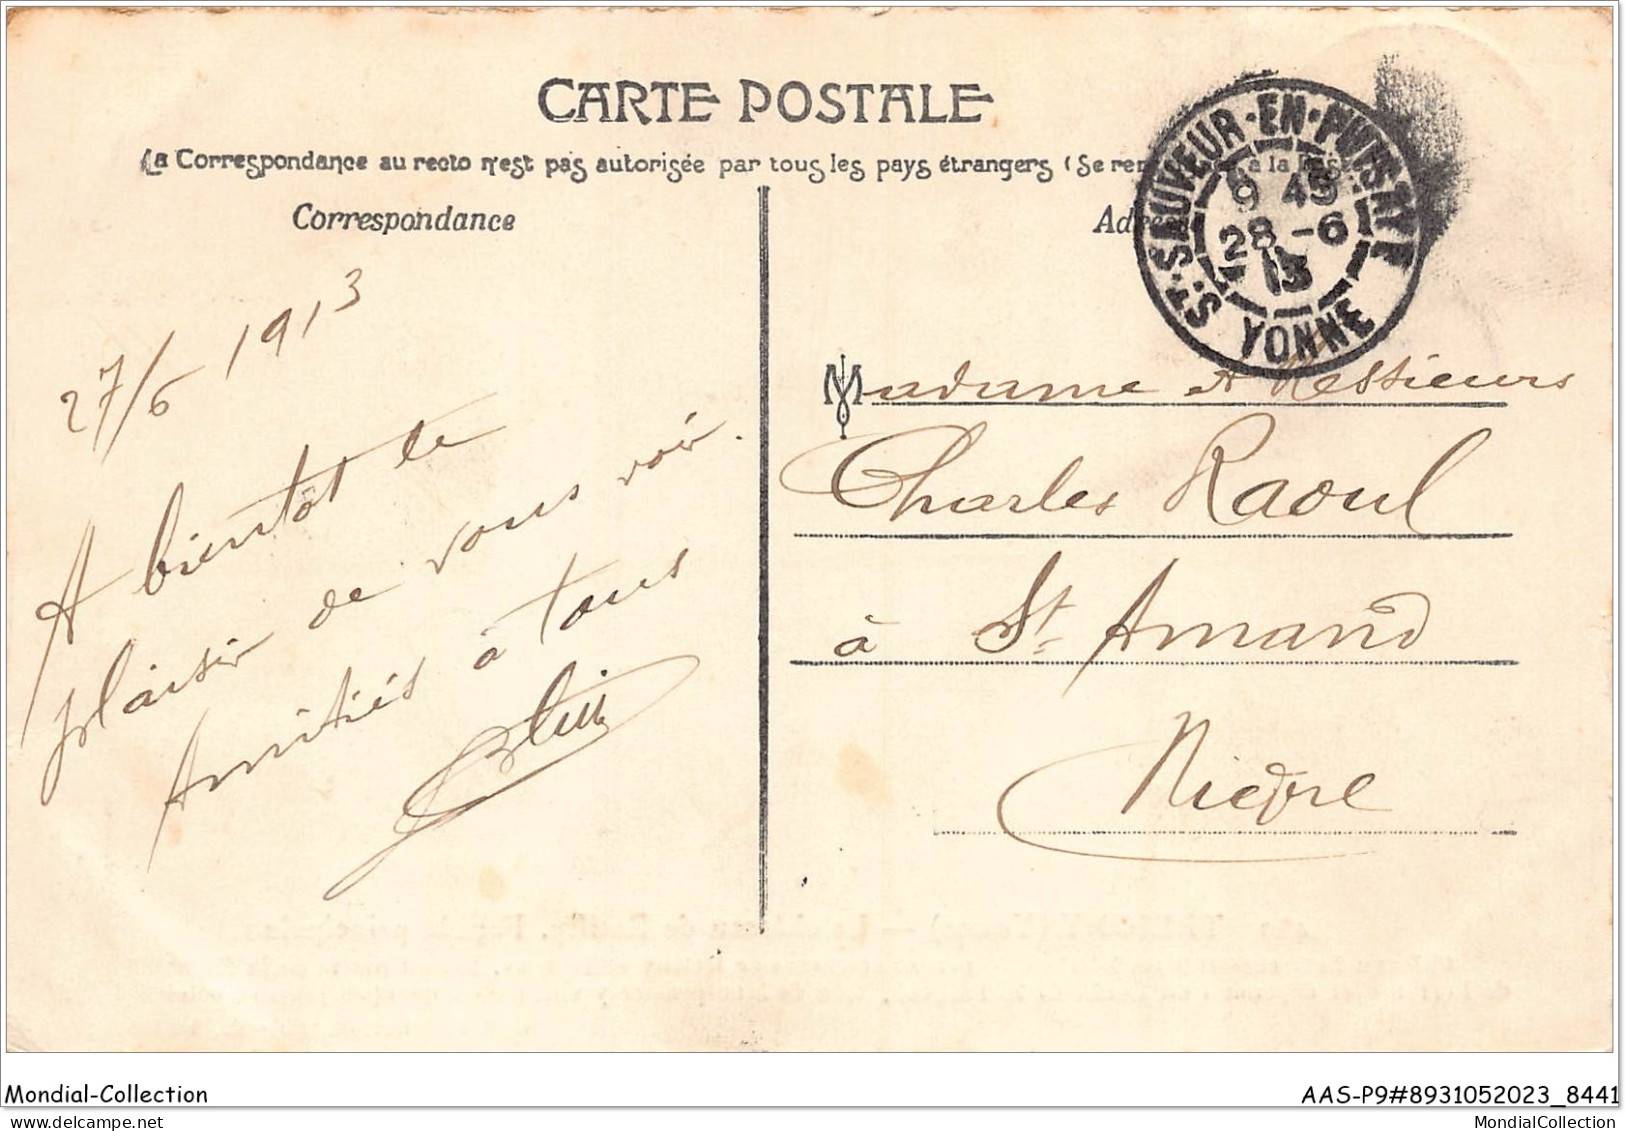 CARTE POSTALE
La Correspondance au recto n'est pas autorisée par tous les pays étrangers (Se à la
Correspondance
27/6 1913
A bientôt le
plaisir de vous voir.
Amitiés à tous
ST-SAUVEUR-EN-PUISAYE
9 45
28 -6
13
YONNE
Madame et Messieurs
Charles Raoul
à St. Amand
Nièvre
Mondial-Collection
AAS-P9#8931052023_8441
www.mondialcollection.delcampe.net
MondialCollection